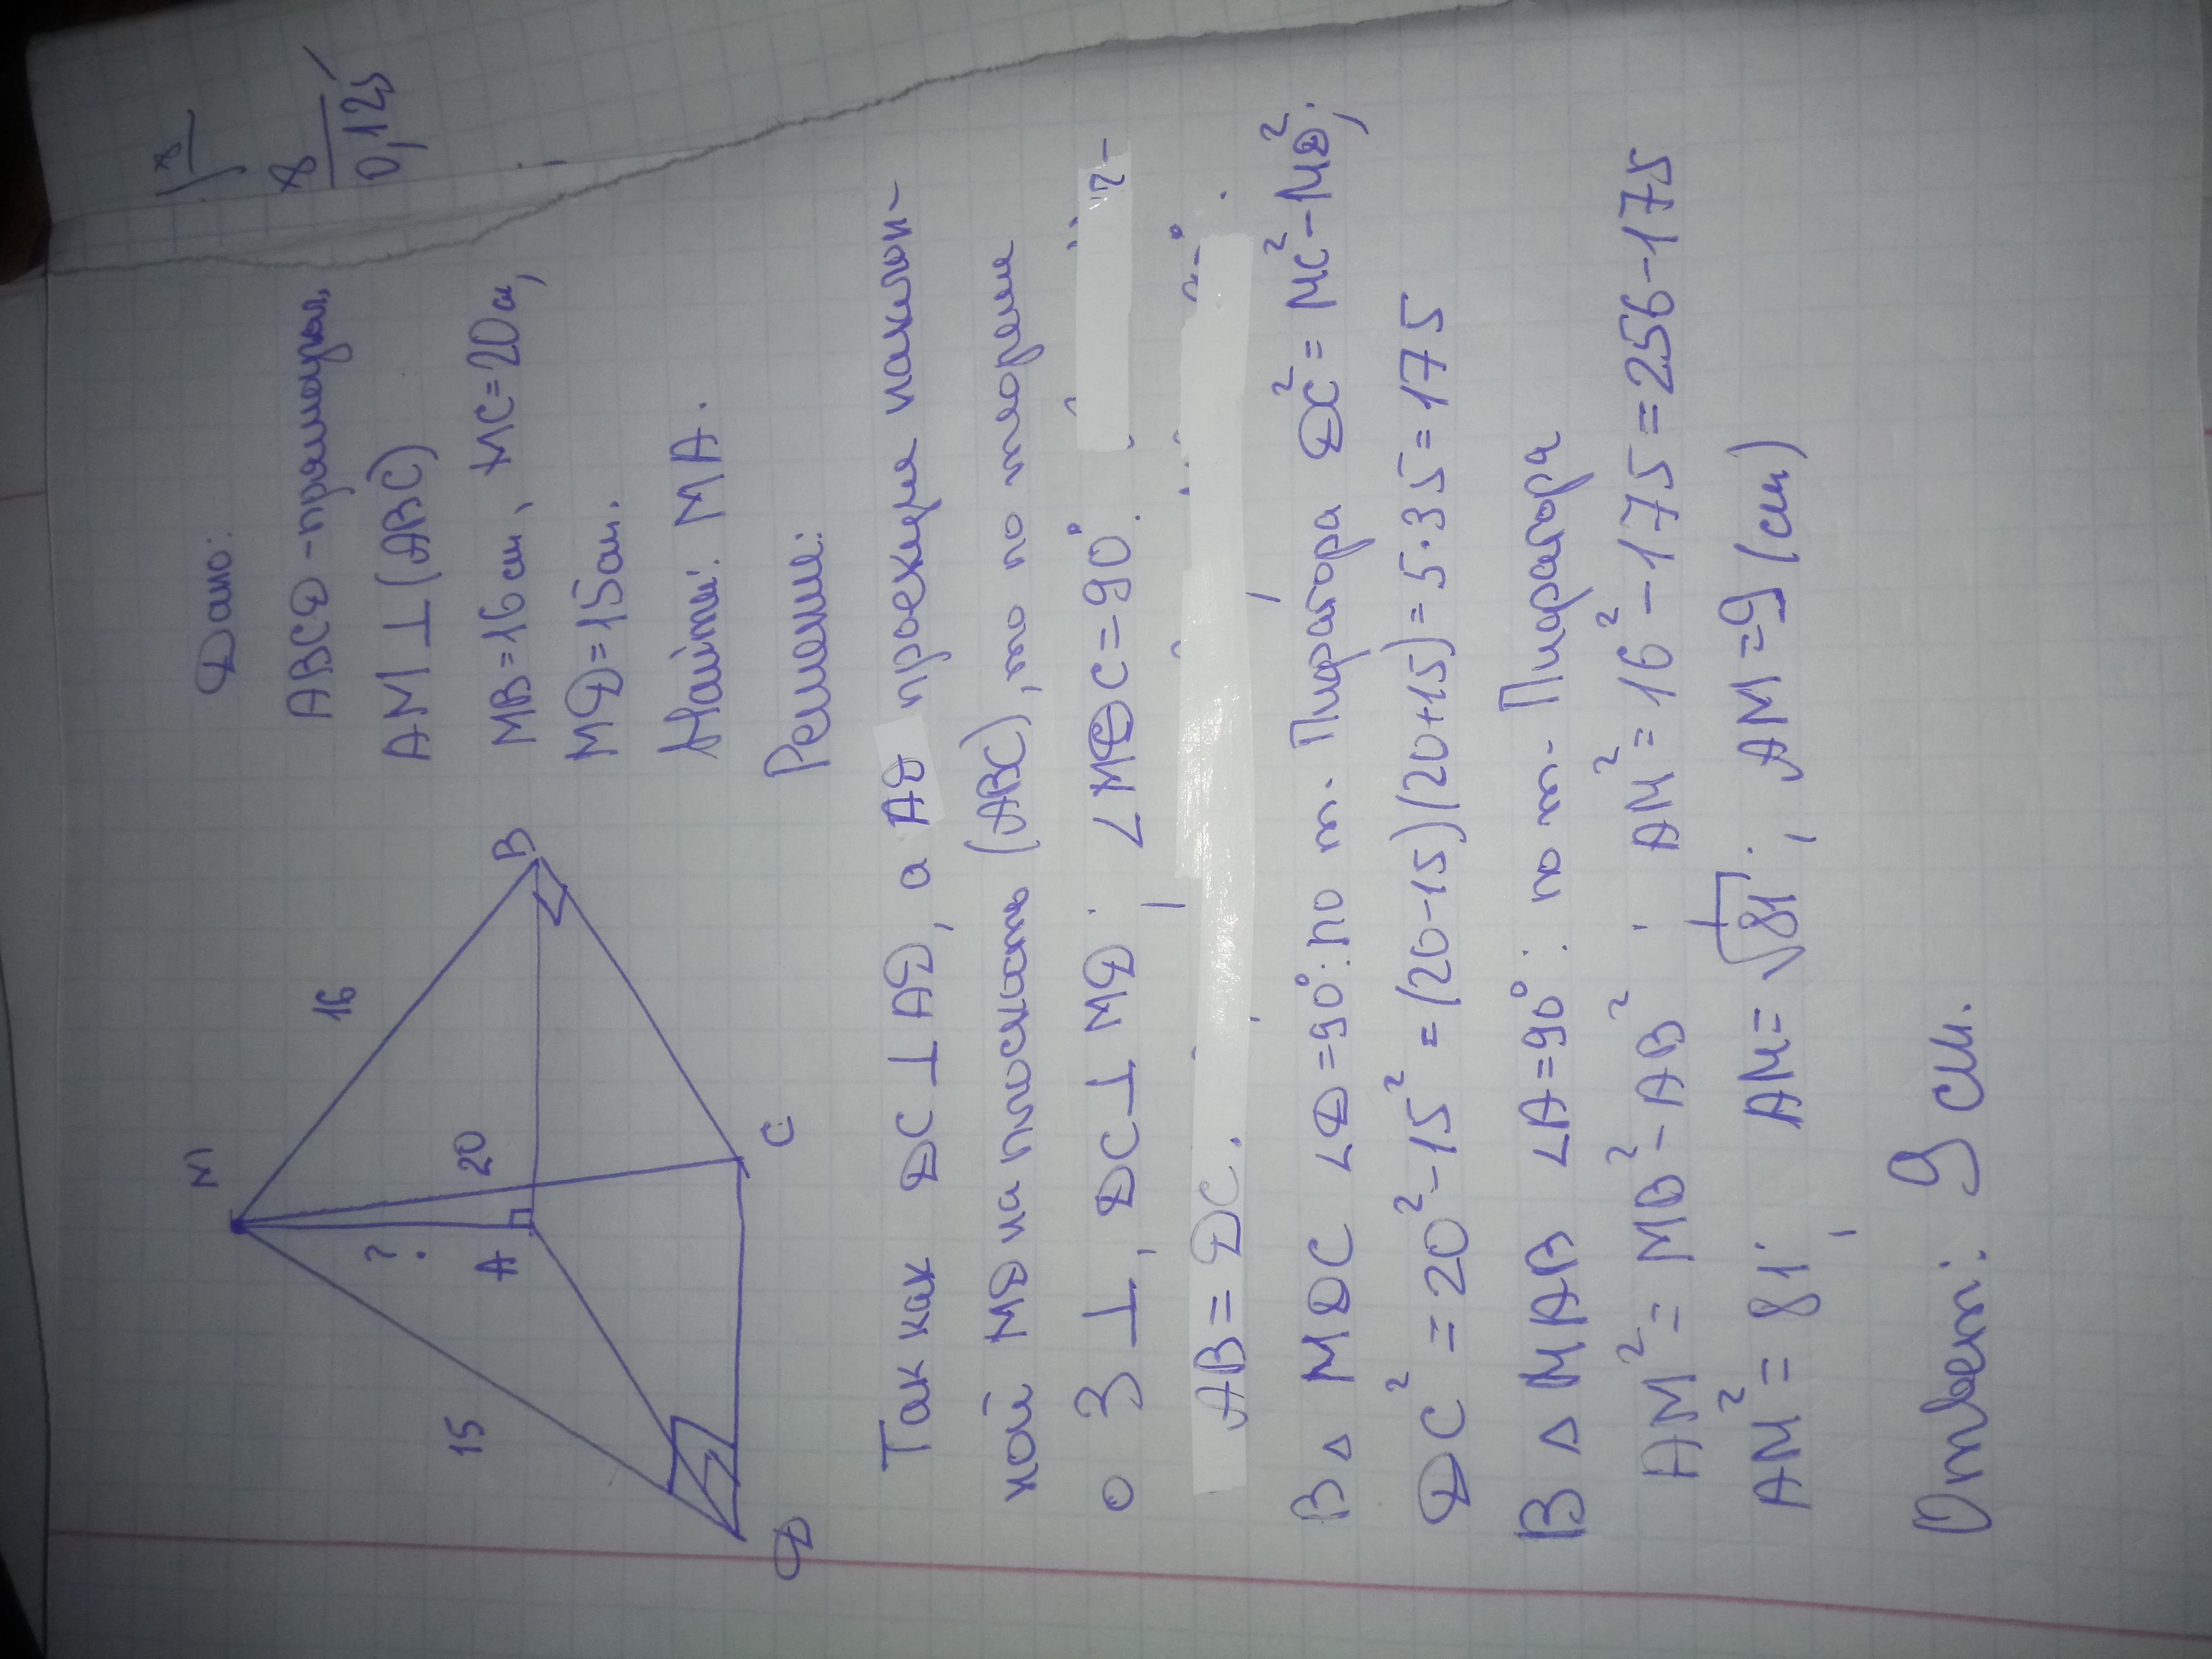 8
0,125
M
16
15
20
?
A
B
C
D
Дано:
ABCD - прямоугол,
AM ⊥ (ABC)
MB = 16 см, MC = 20 см,
MD = 15 см.
Найти: MA.
Решение:
Так как DC ⊥ AD, а AD проекция наклон-
ной MD на плоскость (ABC), то по теореме
о 3 ⊥, DC ⊥ MD; ∠MDC = 90°.
AB = DC.
В △ MDC ∠D = 90°: по т. Пифагора DC² = MC² - MD²;
DC² = 20² - 15² = (20-15)(20+15) = 5·35 = 175
В △ MAB ∠A = 90°: по т. Пифагора
AM² = MB² - AB²; AM² = 16² - 175 = 256 - 175
AM² = 81; AM = √81; AM = 9 (см)
Ответ: 9 см.